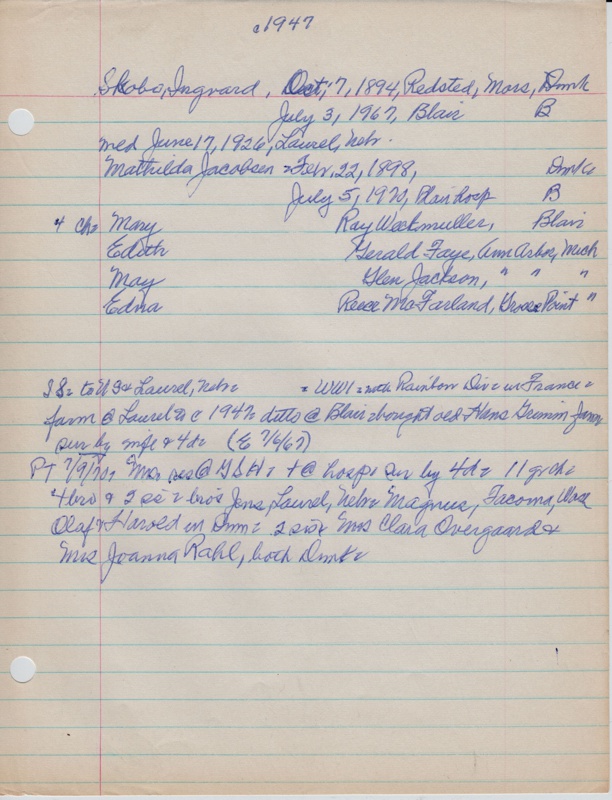 c1947
Skobo, Ingvard, Oct, 7, 1894, Redsted, Mors, Dmk
July 3, 1967, Blair B
med June 17, 1926, Laurel, Nebr.
Mathilda Jacobsen Febr. 22, 1898, Dmk
July 5, 1970, Blair hosp B
4 ch= Mary Ray Weekmuller, Blair
Edith Gerald Faye, Ann Arbor, Mich
May Glen Jackson, " " "
Edna Reece McFarland, Grosse Point "
to US & Laurel, Nebr = WW1 = with Rainbow Div = in France =
farm @ Laurel c 1947 = ditto @ Blair = bought old Hans Grimm farm
sur by wife & 4 d = (E 7/6/67)
PT 7/9/70 = Mrs res @ GSH = + @ hosp = sur by 4 d = 11 grch =
4 bro & 2 si = bro's Jens, Laurel, Nebr = Magnus, Tacoma, Wash
Olaf & Harold in Dmk = 2 sis = Mrs Clara Overgaard &
Mrs Joanna Rahl, both Dmk =